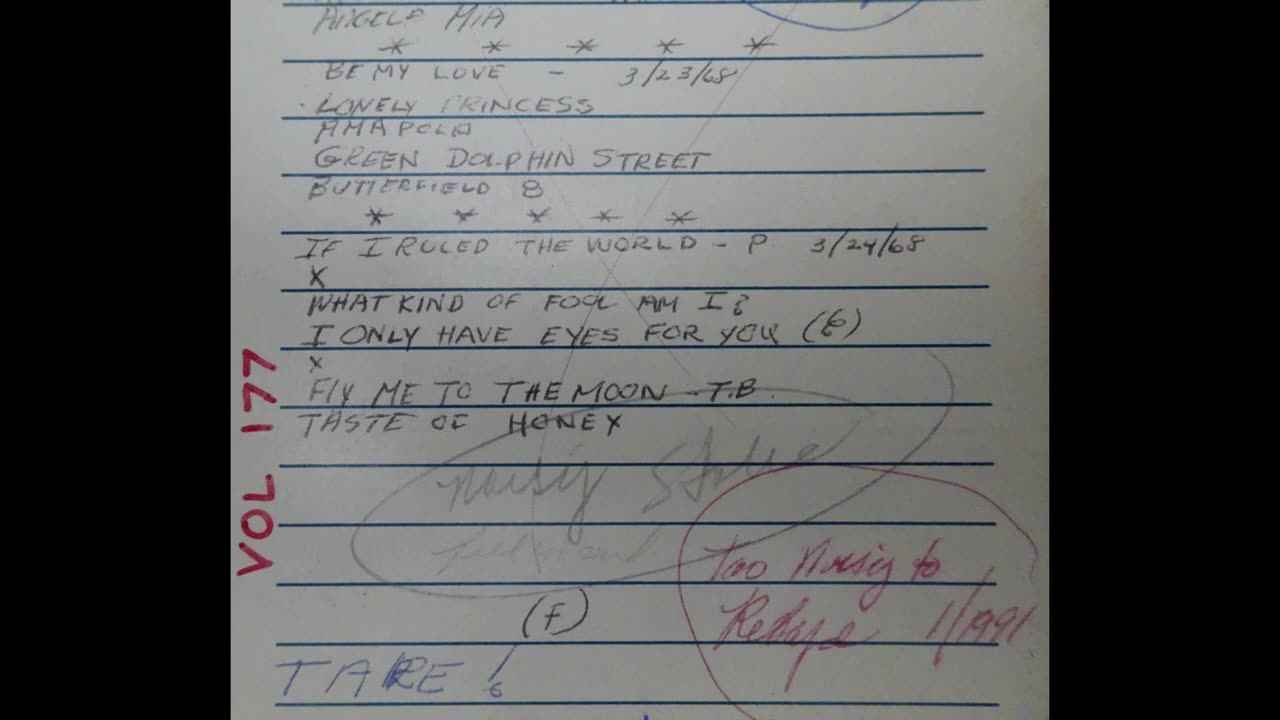 ANGELA MIA
* * * * *
BE MY LOVE - 3/23/68
LONELY PRINCESS
AMAPOLA
GREEN DOLPHIN STREET
BUTTERFIELD 8
* * * * *
IF I RULED THE WORLD - P 3/24/68
X
WHAT KIND OF FOOL AM I?
I ONLY HAVE EYES FOR YOU (6)
X
FLY ME TO THE MOON - T.B.
TASTE OF HONEY
VOL 177
Noisy
Too Noisy to
Retape 1/1991
(F)